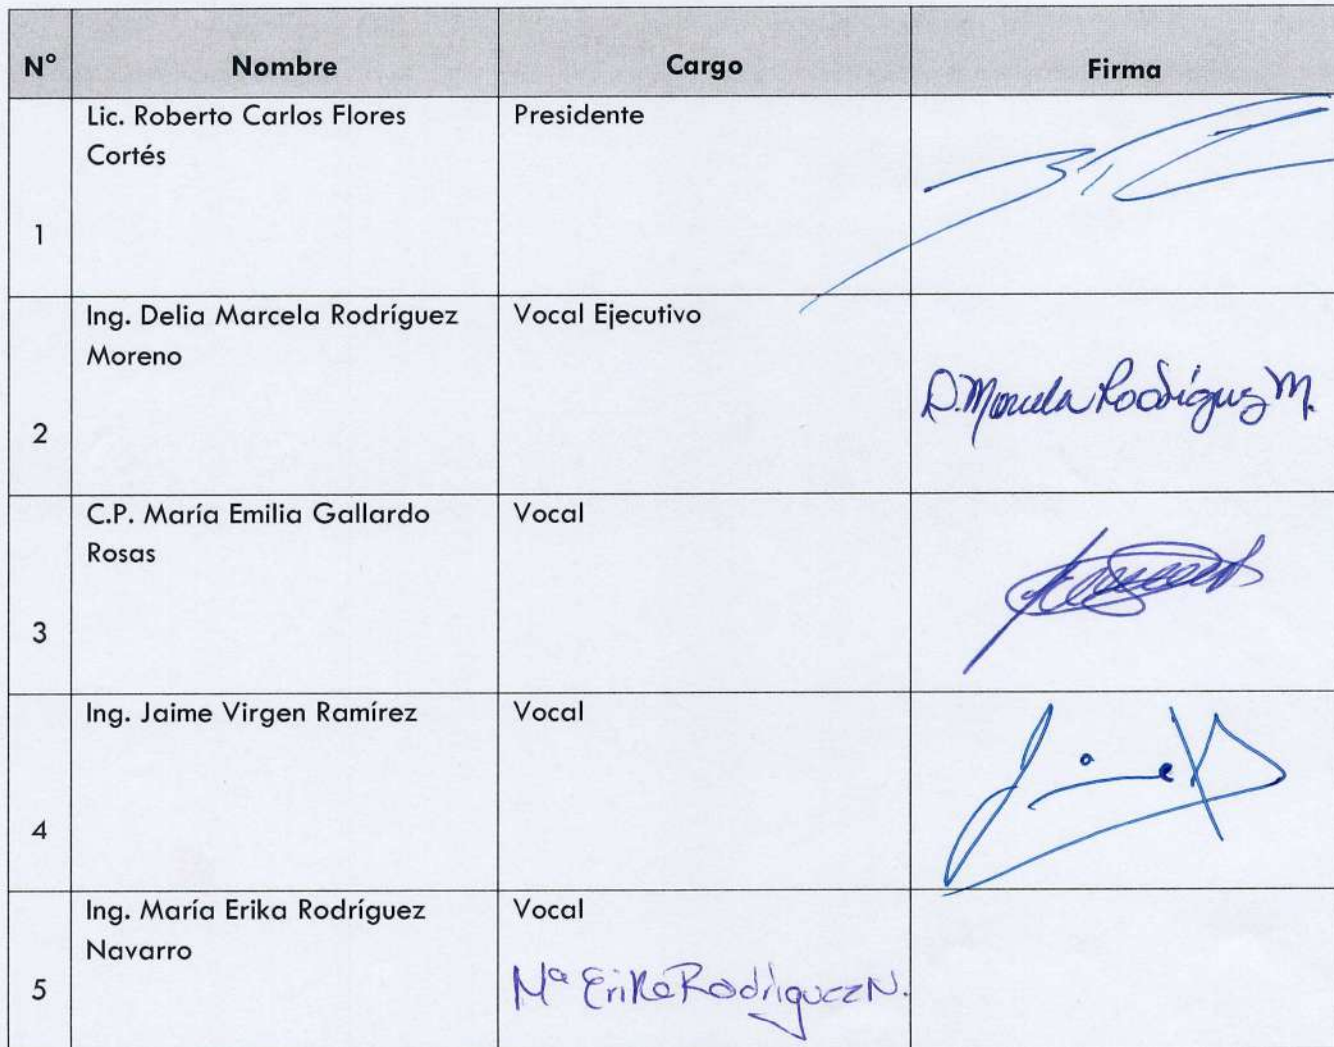 N° Nombre Cargo Firma
Lic. Roberto Carlos Flores Presidente
Cortés
1
Ing. Delia Marcela Rodríguez Vocal Ejecutivo
Moreno
D. Marcela Rodríguez M.
2
C.P. María Emilia Gallardo Vocal
Rosas
3
Ing. Jaime Virgen Ramírez Vocal
4
Ing. María Erika Rodríguez Vocal
Navarro
Mª Erika Rodríguez N.
5